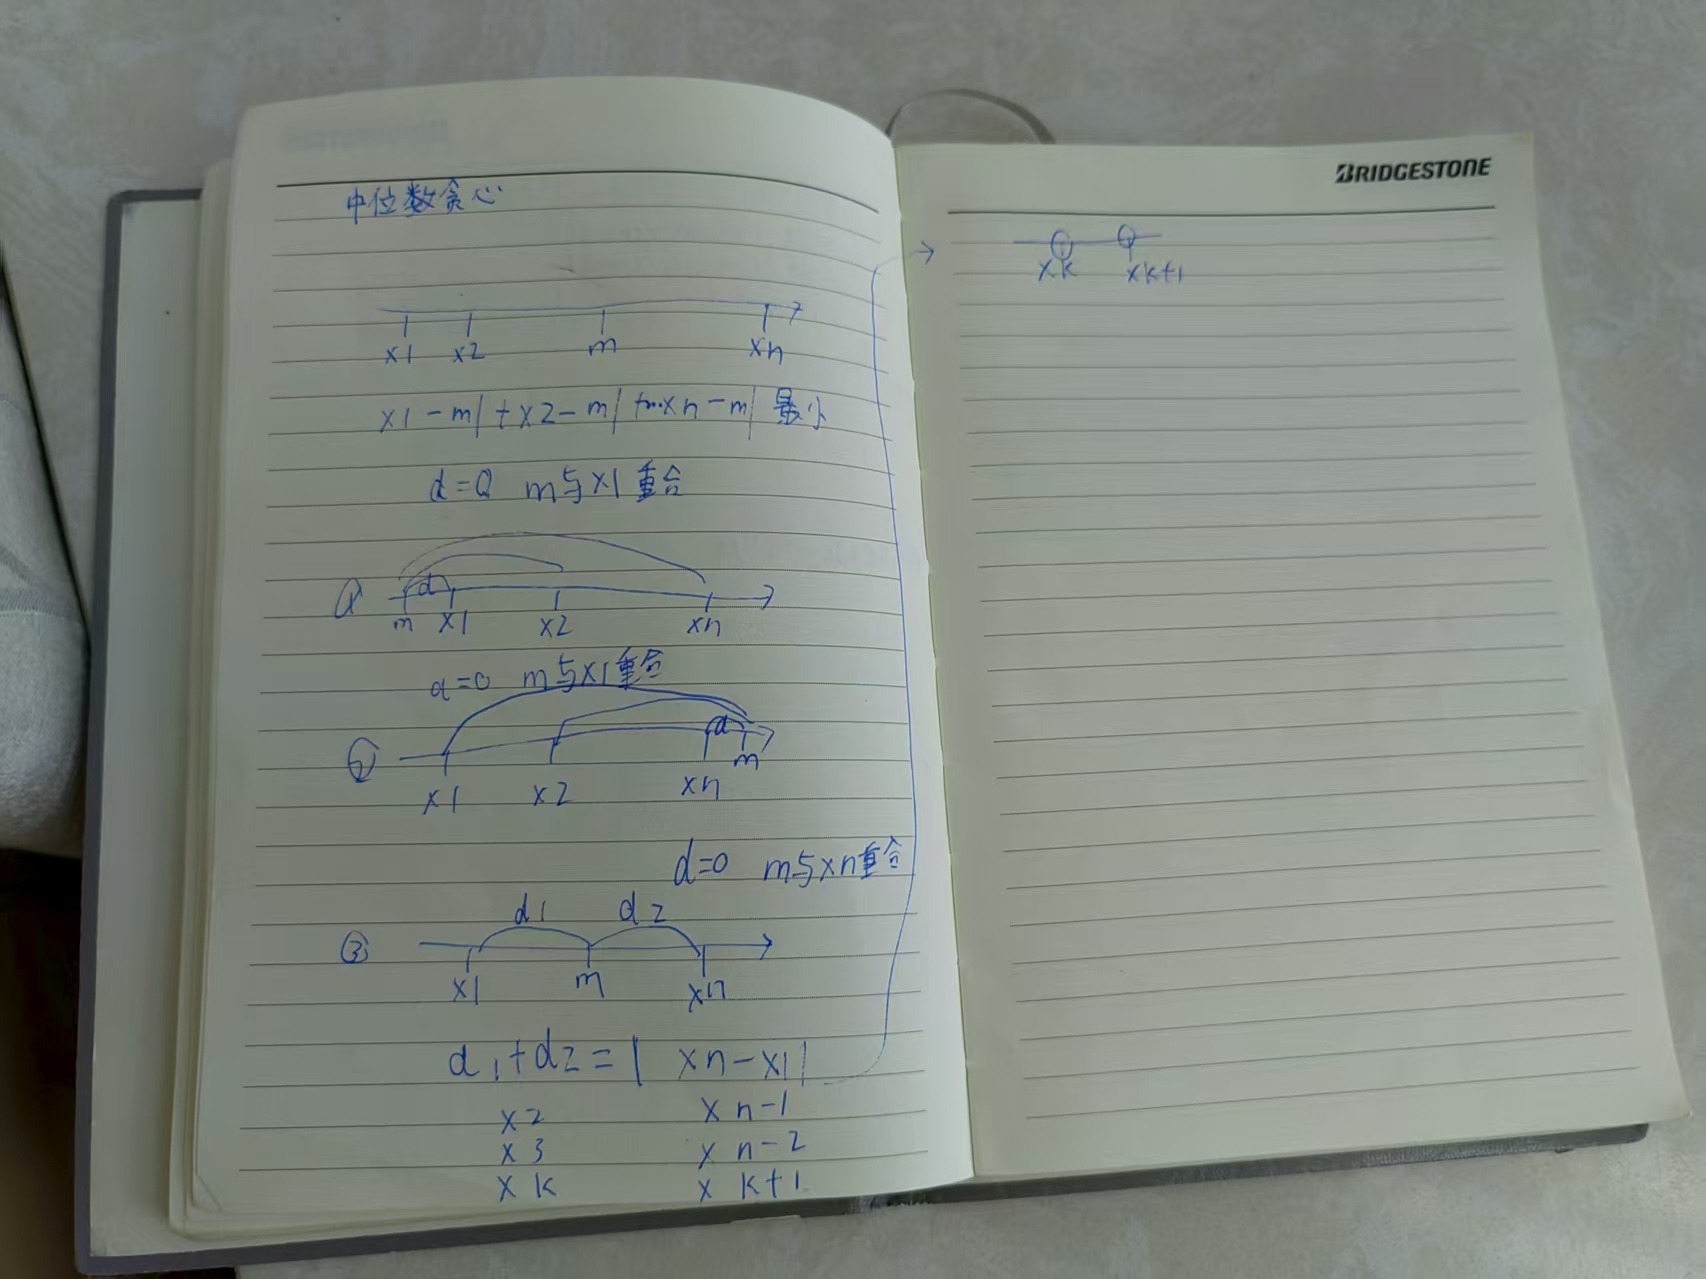 中位数贪心
x1 x2 m xn
x1-m|+x2-m|+...xn-m| 最小
d=0 m与x1重合
①
d
m x1 x2 xn
d=0 m与x1重合
②
d
m
x1 x2 xn
d=0 m与xn重合
d1 d2
③
x1 m xn
d1+d2=| xn-x1|
x2 xn-1
x3 xn-2
xk xk+1
BRIDGESTONE
xk xk+1